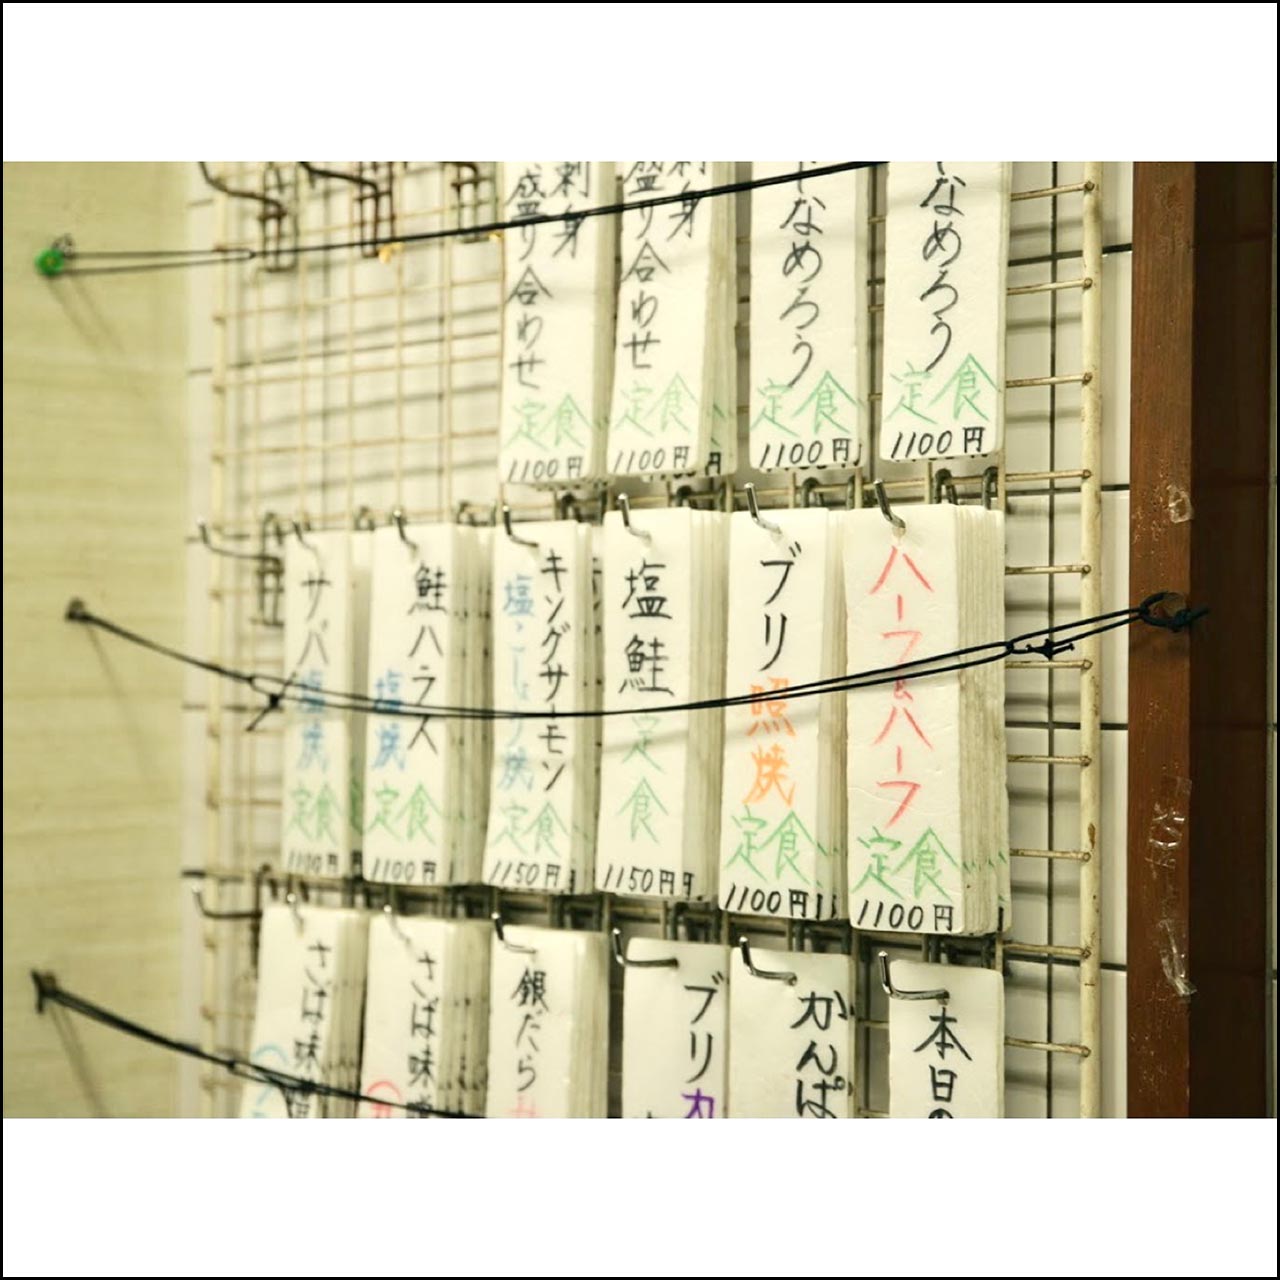 刺身
盛り合わせ
定食
1100円
刺身
盛り合わせ
定食
1100円
なめろう
定食
1100円
なめろう
定食
1100円
サバ
塩焼
定食
1100円
鮭ハラス
塩焼
定食
1100円
キングサーモン
塩・こしょう焼
定食
1150円
塩鮭
定食
1150円
ブリ
照焼
定食
1100円
ハーフ&ハーフ
定食
1100円
さば味噌
さば味噌
銀だらみ
ブリ
かんぱ
本日の